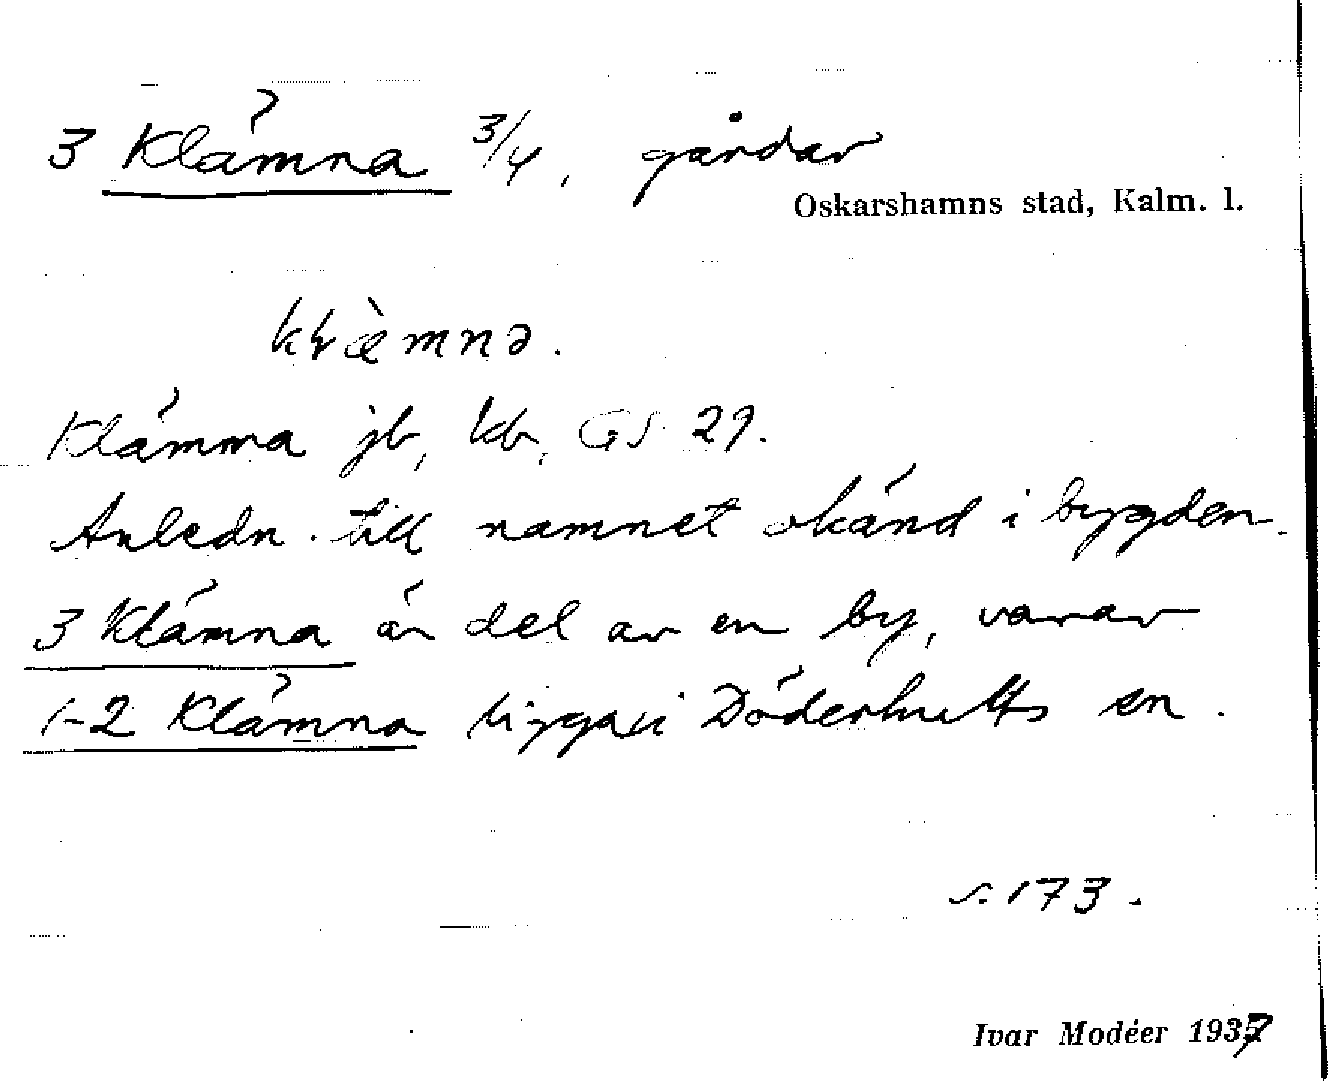 3 Klämna 3/4, gårdar
Oskarshamns stad, Kalm. l.
klæ̀mnə.
Klämma jb, kb, GS 29.
Anledn. till namnet okänd i bygden.
3 Klämna är del av en by, varav
1-2 Klämna ligga i Döderhults sn.
s. 173.
Ivar Modéer 1937